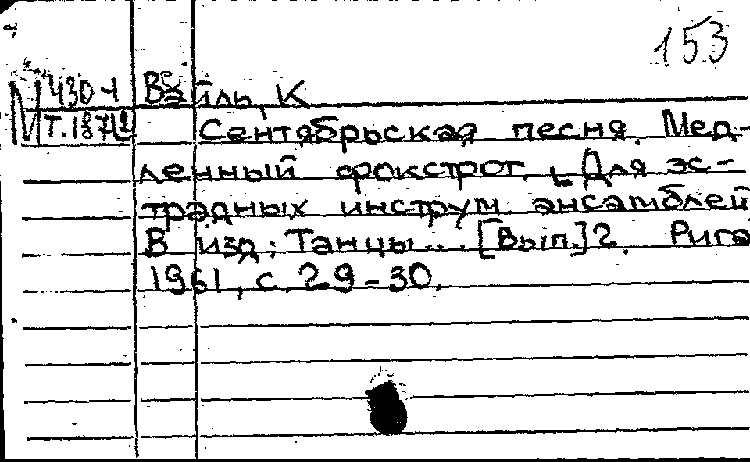 153
М430-1 Вейль, К
Т.187 Сентябрьская песня. Мед-
ленный фокстрот. Для эс-
традных инструм. ансамблей
В изд.: Танцы... [Вып.] 2. Рига
1961, с. 29-30.